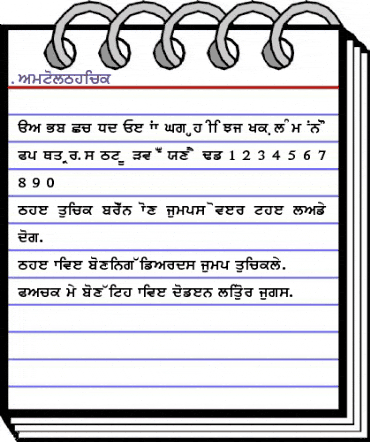 .ਅਮਟੋਲਠਹਚਿਕ
ੳਅ ਭਬ ਛਚ ਧਦ ਓੲ ਘਗ ਹ ਝਜ ਖਕ ਲ ਮ ਨ
ਫਪ ਥਤ ਰ.ਸ ਠਟ ੜਵ ਯਣ ਢਡ 1 2 3 4 5 6 7
8 9 0
ਠਹੲ ਤੁਚਿਕ ਬਰੌਂਨ ੋਣ ਜੁਮਪਸ ੋਵੲਰ ਟਹੲ ਲਅਡੇ
ਦੋਗ.
ਠਹੲ ਾਵਿੲ ਬੋਣਨਿਗ ੱਡਿਅਰਦਸ ਜੁਮਪ ਤੁਚਿਕਲੇ.
ਫਅਚਕ ਮੇ ਬੋਣ ੱਟਿਹ ਾਵਿੲ ਦੋਡੲਨ ਲਤਿੁੋਰ ਜੁਗਸ.